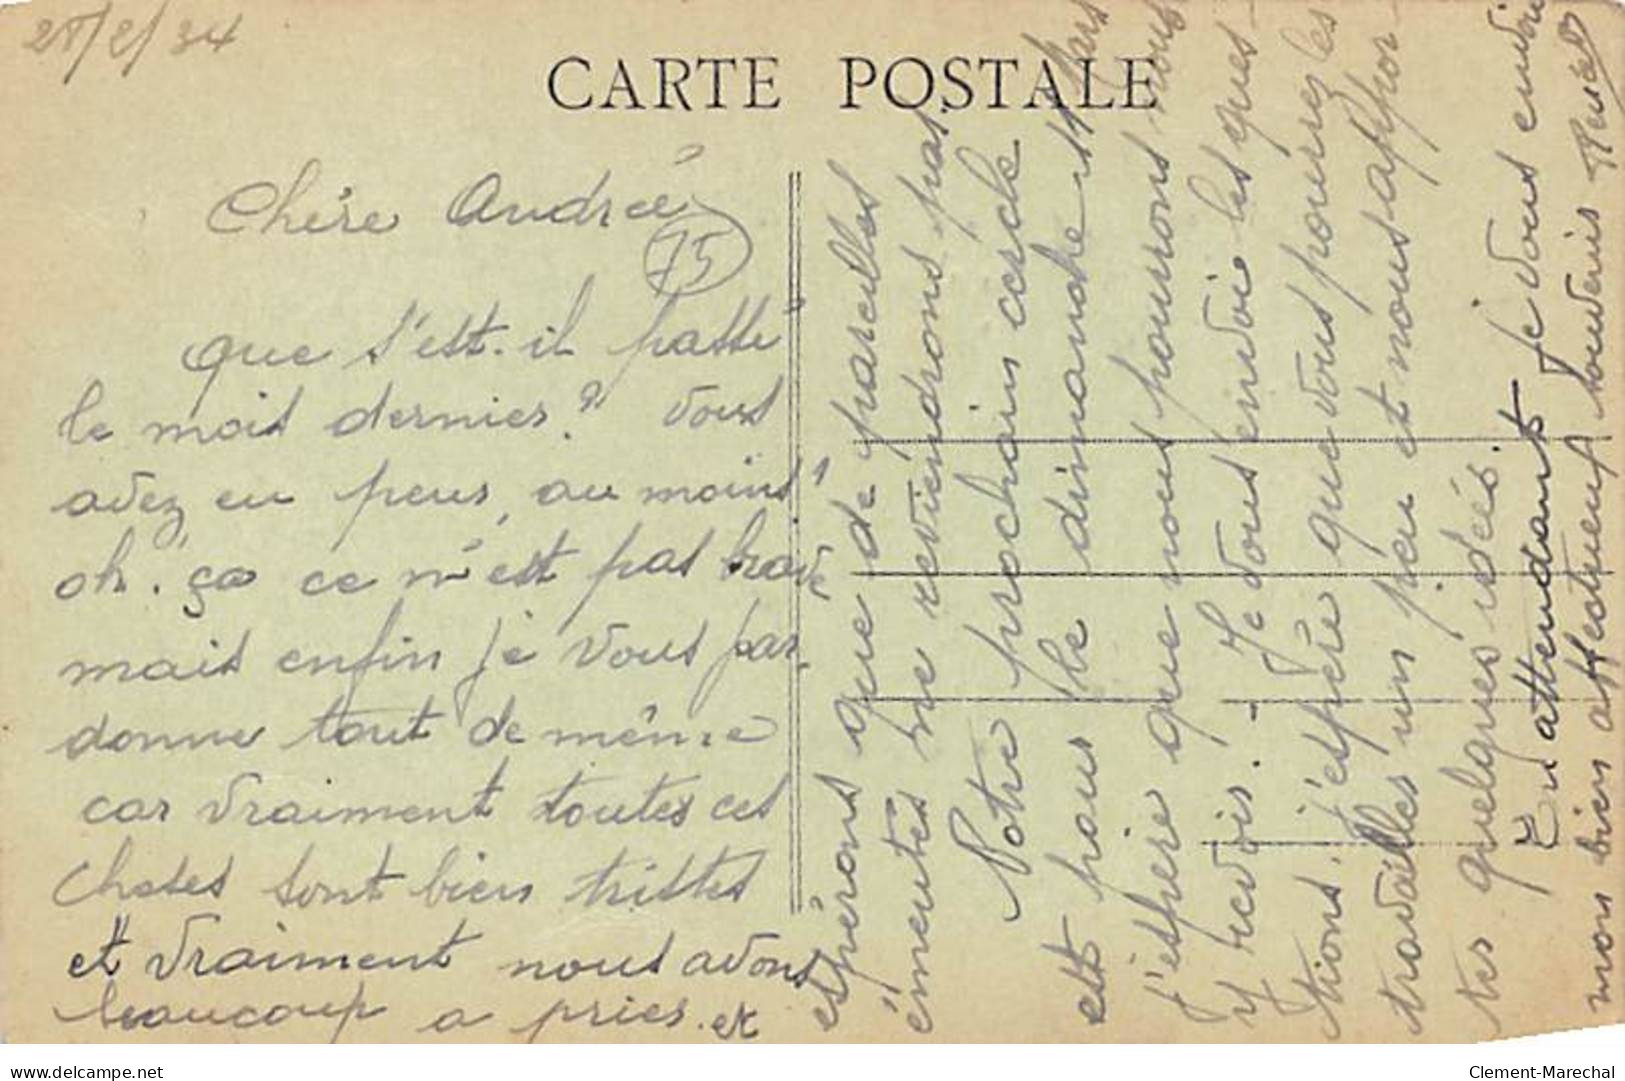 25/2/34
CARTE POSTALE
Chère Andrée
75
que s'est-il passé
le mois dernier? vous
avez eu peur, au moins!
oh. ça ce n'est pas brave
mais enfin je vous par-
donne tout de même
car vraiment toutes ces
choses sont bien tristes
et vraiment nous avons
beaucoup a prier. et
espérons que de pareilles
émeutes ne reviendrons pas.
Notre prochain cercle
est pour le dimanche 11 Mars
j'espère que nous pourrons nous
y revoir. - Je vous envoie les ques-
tions. j'espère que vous pourrez les
travailler un peu et nous appor-
ter quelques idées.
En attendant je vous envoie
mon bien affectueux souvenir
delcampe.net
Clement-Marechal